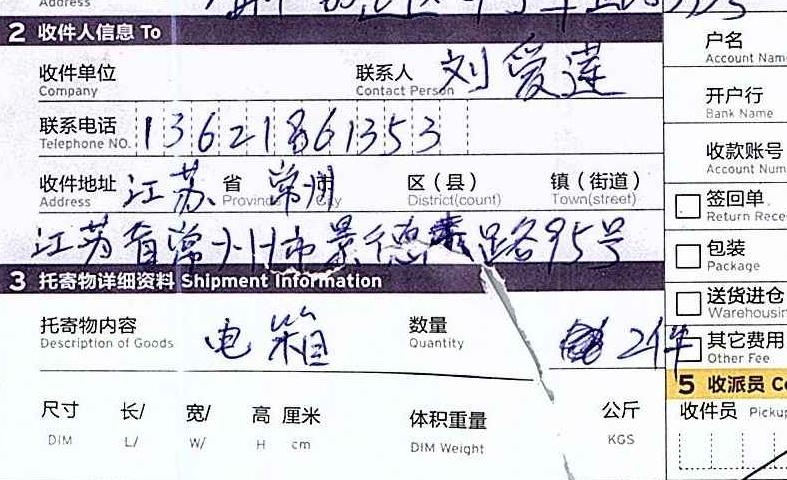 Address
2 收件人信息 To
收件单位 联系人 刘爱莲
Company Contact Person
联系电话 13621861353
Telephone NO.
收件地址 江苏 省 常州 区（县） 镇（街道）
Address Provinc City District(count) Town(street)
江苏省常州市景德 路95号
3 托寄物详细资料 Shipment Information
托寄物内容 电箱 数量 2件
Description of Goods Quantity
尺寸 长/ 宽/ 高 厘米 体积重量 公斤
DIM L/ W/ H cm DIM Weight KGS
户名
Account Nam
开户行
Bank Name
收款账号
Account Num
签回单
Return Rece
包装
Package
送货进仓
Warehousin
其它费用
Other Fee
5 收派员 Co
收件员 Pickup